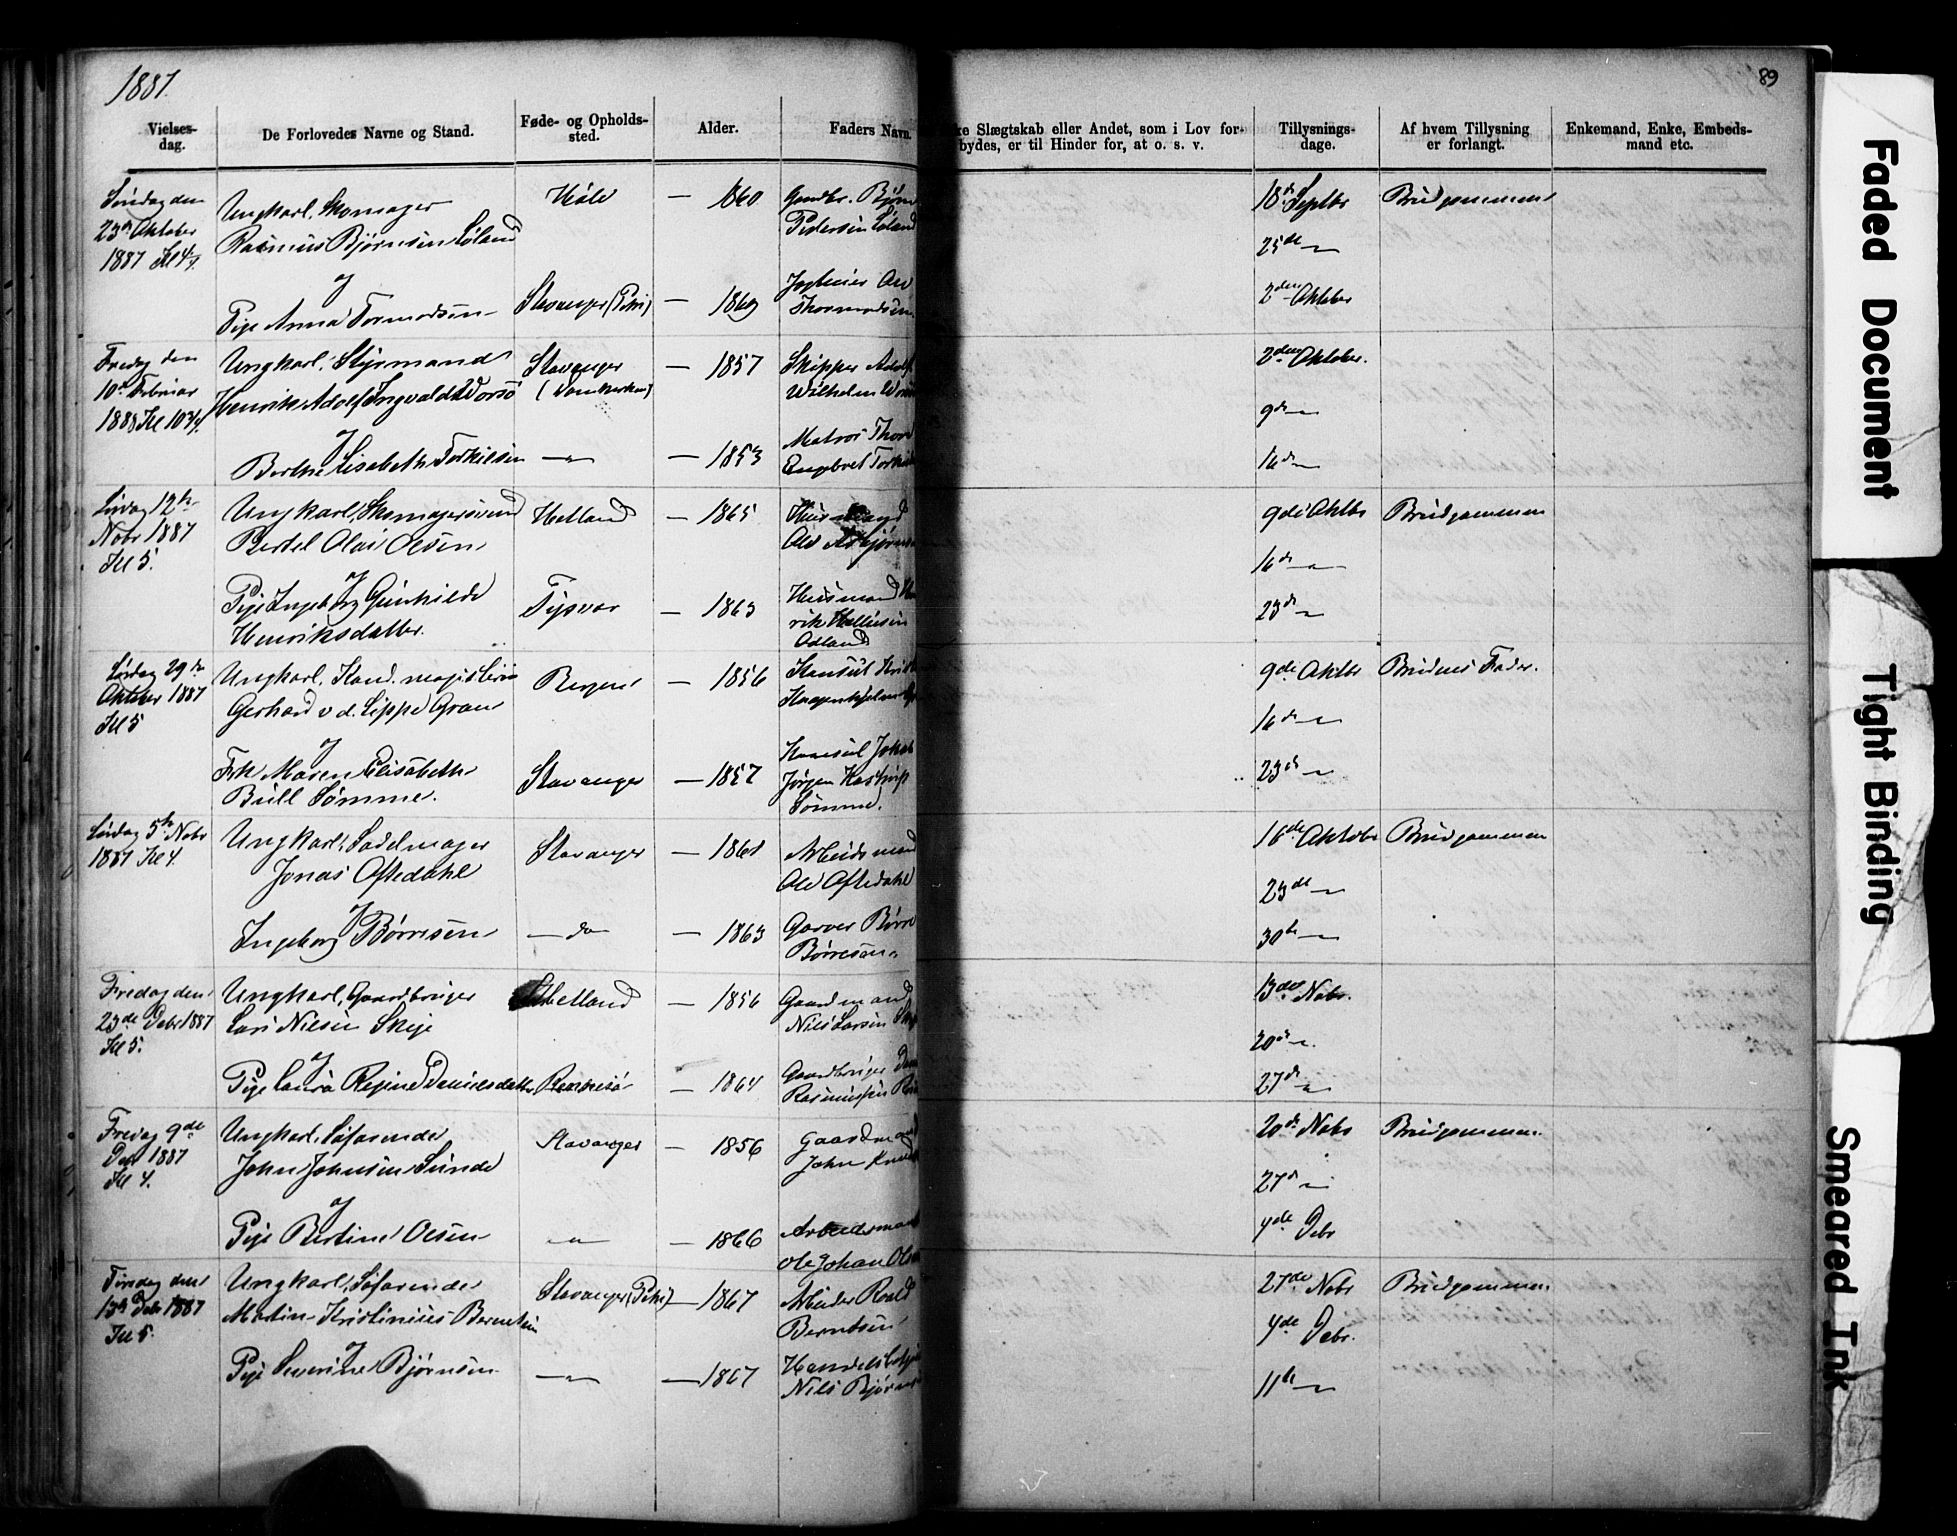 1887.
89
Vielses-
dag.
De Forlovedes Navne og Stand.
Føde- og Opholds-
sted.
Alder.
Faders Navn.
ke Slægtskab eller Andet, som i Lov for-
bydes, er til Hinder for, at o. s. v.
Tillysnings-
dage.
Af hvem Tillysning
er forlangt.
Enkemand, Enke, Embeds-
mand etc.
Søndag den
23de Oktober
1887 Kl 4
Ungkarl, Skomager
Rasmus Bjørnsen Soland
og
Pige Anna Tormodsen
Høle
Stavanger (Petri)
— 1860
— 1869
Gaardbr. Bjørn
Pedersen Soland
Ole
Thormodsen
18de Septbr
25de —"—
2den Oktober
Brudgommen
Fredag den
10de Februar
1888 Kl 10 3/4
Ungkarl, Styrmand
Henrik Adolf Ingvald Worsø
og
Berthe Lisabeth Torkilsen
Stavanger
(Domkirken)
—"—
— 1857
— 1853
Skipper Adolf
Wilhelm
Matros Thore
Engebret
2den Oktober.
9de —"—
16de —"—
Lørdag 12te
Novbr 1887
Kl 5.
Ungkarl, Skomagersvend
Bertel Olai Olsen
og
Pige Ingeborg Gunhilde
Henriksdatter.
Hetland
Tysvær
— 1865
— 1863
Husmand
Ole
Husmand
rik
Odland
9de Oktbr
16de —"—
23de —"—
Brudgommen
Lørdag 29de
Oktober 1887
Kl 5
Ungkarl, Kand. magisterii
Gerhard v. d. Lippe Gran
og
Frk Maren Elisabeth
Bull Sømme.
Bergen
Stavanger
— 1856
— 1857
Konsul
Konsul
Jørgen Kastrup
Sømme.
9de Oktbr
16de —"—
23de —"—
Brudens Fader.
Lørdag 5te Novbr
1887 Kl 4.
Ungkarl, Sadelmager
Jonas Aftedahl
og
Ingeborg Børresen
Stavanger
— do —
— 1861
— 1863
Arbeidsmand
Ole Aftedahl
Garver Børre
Børresen
16de Oktobr
23de —"—
30te —"—
Brudgommen
Fredag den
23de Debr 1887
Kl 5.
Ungkarl, Gaardbruger
Lars Nilsen Skeje
og
Pige Laura Regine Danielsdatter
Hetland
Rennesø
— 1856
— 1864
Gaardmand
Nils Larsen
Gaardbruger
Rasmussen
13de Novbr.
20de —"—
27de —"—
Fredag 9de
Debr 1887
Kl 4.
Ungkarl, Søfarende
John Johnsen Sunde
og
Pige Bertine Olsen
Stavanger
—"—
— 1856
— 1866
Gaardmand
John
Arbeidsmand
Ole Johan
20de Novbr
27de —"—
4de Debr
Brudgommen
Tirsdag den
13de Debr 1887
Kl 5.
Ungkarl, Søfarende
Martin Kristinius Berntsen
og
Pige Severine Bjørnsen
Stavanger (Petri)
—"—
— 1867
— 1867
Arbeider Roald
Berntsen
Nils
27de Novbr
4de Debr.
11te —"—
Brudgommen
Faded Document
Tight Binding
Smeared Ink